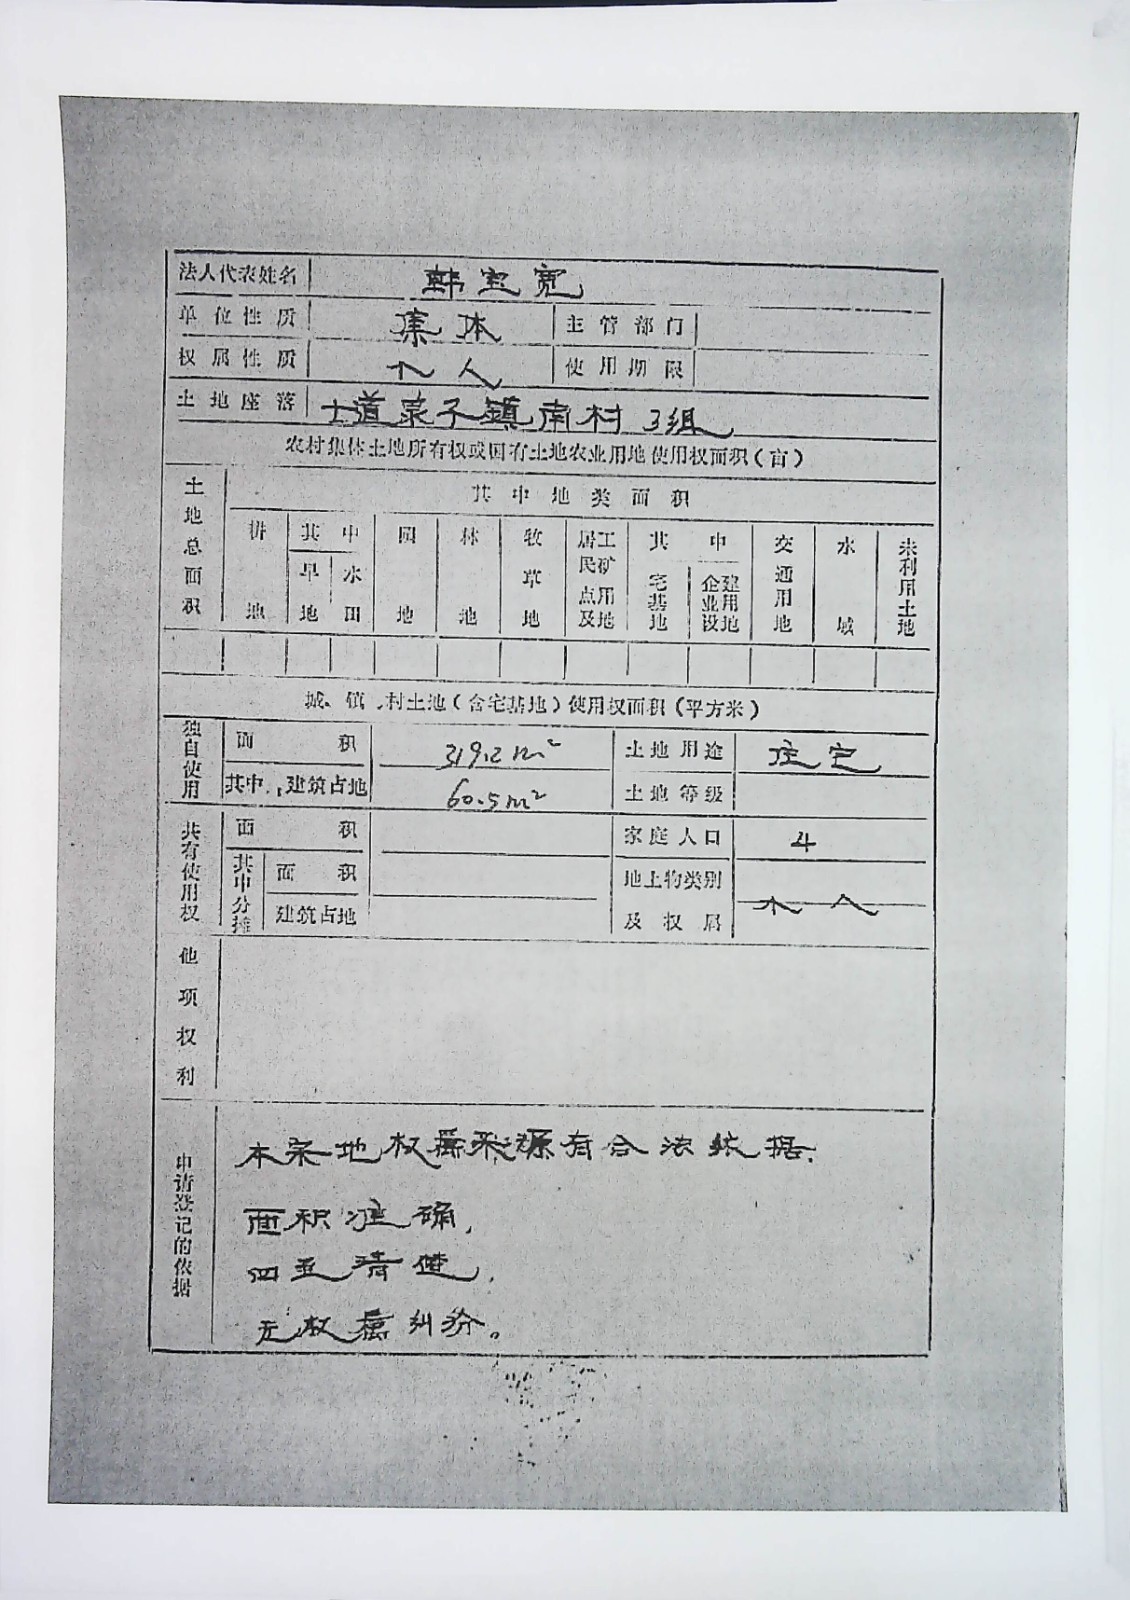 法人代表姓名 韩宝宽
单位性质 集体 主管部门
权属性质 个人 使用期限
土地座落 土道泉子镇南村 3组
农村集体土地所有权或国有土地农业用地使用权面积(亩)
土地总面积 其中地类面积
耕地 其中 旱地 水田 园地 林地 牧草地 居民点及工矿用地 其中 宅基地 企业建设用地 交通用地 水域 未利用土地
城、镇、村土地(含宅基地)使用权面积(平方米)
独自使用 面积 319.2m² 土地用途 住宅
其中:建筑占地 60.5m² 土地等级
共有使用权 面积 家庭人口 4
其中分摊 面积 地上物类别及权属 个人
建筑占地
他项权利
申请登记的依据
本宗地权属来源有合法依据.
面积准确,
四至清楚,
无权属纠纷。